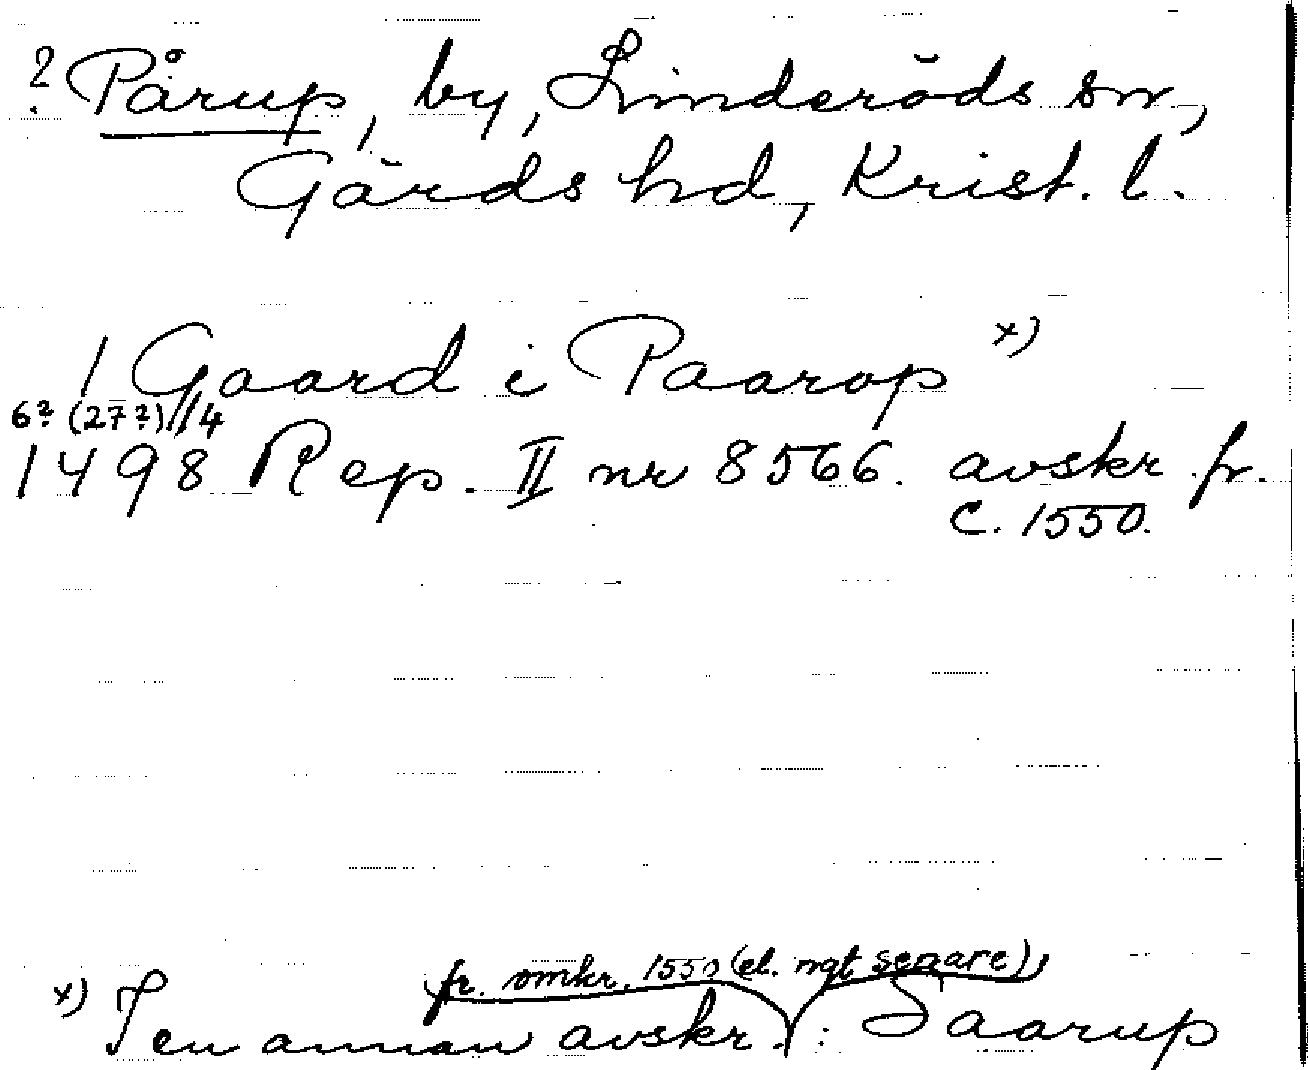 ? Pårup, by, Linderöds sn,
Gärds hd, Krist. l.
1 Gaard i Paarop x)
6? (27?)//4
1498 Rep. II nr 8566. avskr. fr.
c. 1550.
fr. omkr. 1550 (el. ngt senare)
x) I en annan avskr. : Saarup